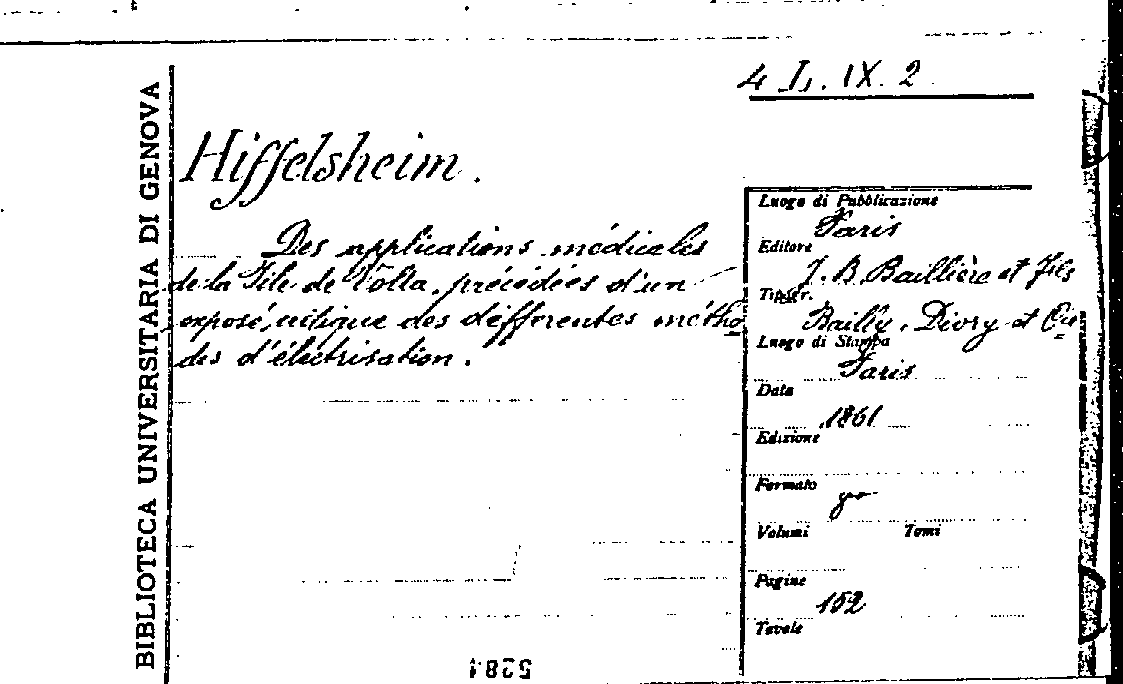 4 L. IX. 2
BIBLIOTECA UNIVERSITARIA DI GENOVA
Hiffelsheim.
Des applications médicales
de la Pile de Volta, précédées d'un
exposé critique des différentes métho
des d'électrisation.
Luogo di Pubblicazione
Paris
Editore
J. B. Baillière et Fils
Tipogr.
Bailly, Divry et Cie
Luogo di Stampa
Paris
Data
1861
Edizione
Formato
Volumi Tomi
Pagine
152
Tavole